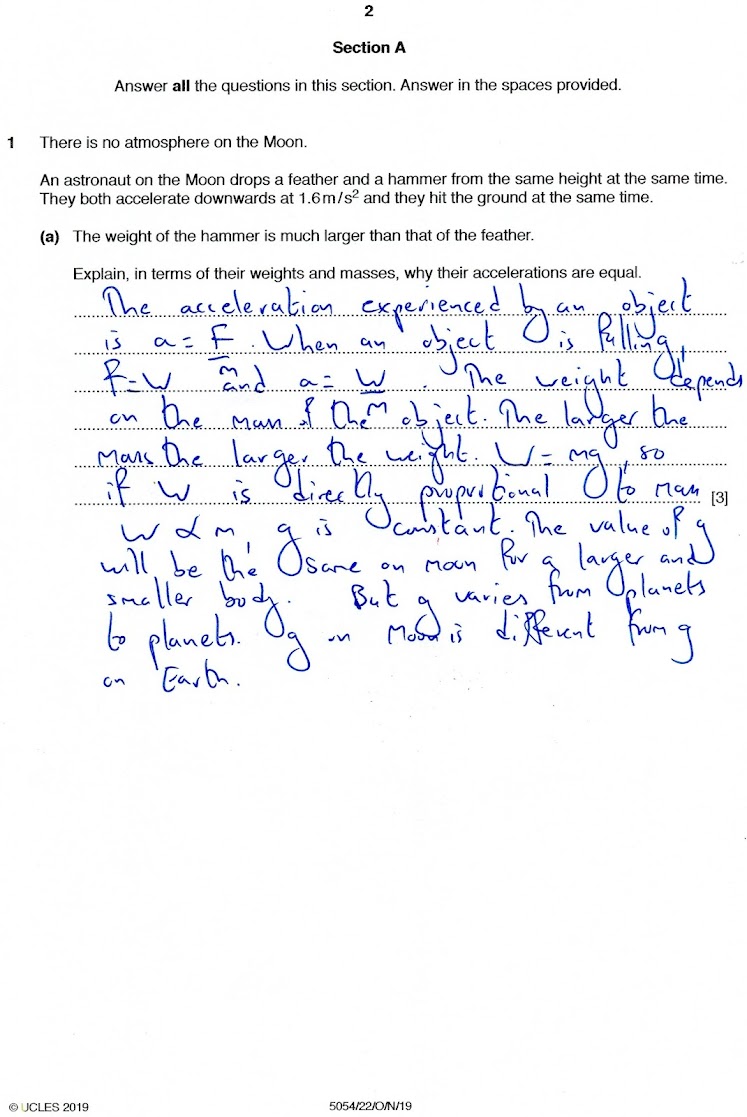 2
Section A
Answer all the questions in this section. Answer in the spaces provided.
1 There is no atmosphere on the Moon.
An astronaut on the Moon drops a feather and a hammer from the same height at the same time.
They both accelerate downwards at 1.6 m/s² and they hit the ground at the same time.
(a) The weight of the hammer is much larger than that of the feather.
Explain, in terms of their weights and masses, why their accelerations are equal.
The acceleration experienced by an object
is a = F/m. When an object is falling,
F = W and a = W/m. The weight depends
on the mass of the object. The larger the
mass the larger the weight. W = mg, so
if W is directly proportional to mass [3]
W ∝ m, g is constant. The value of g
will be the same on moon for a larger and
smaller body. But g varies from planets
to planets. g on Moon is different from g
on Earth.
© UCLES 2019 5054/22/O/N/19